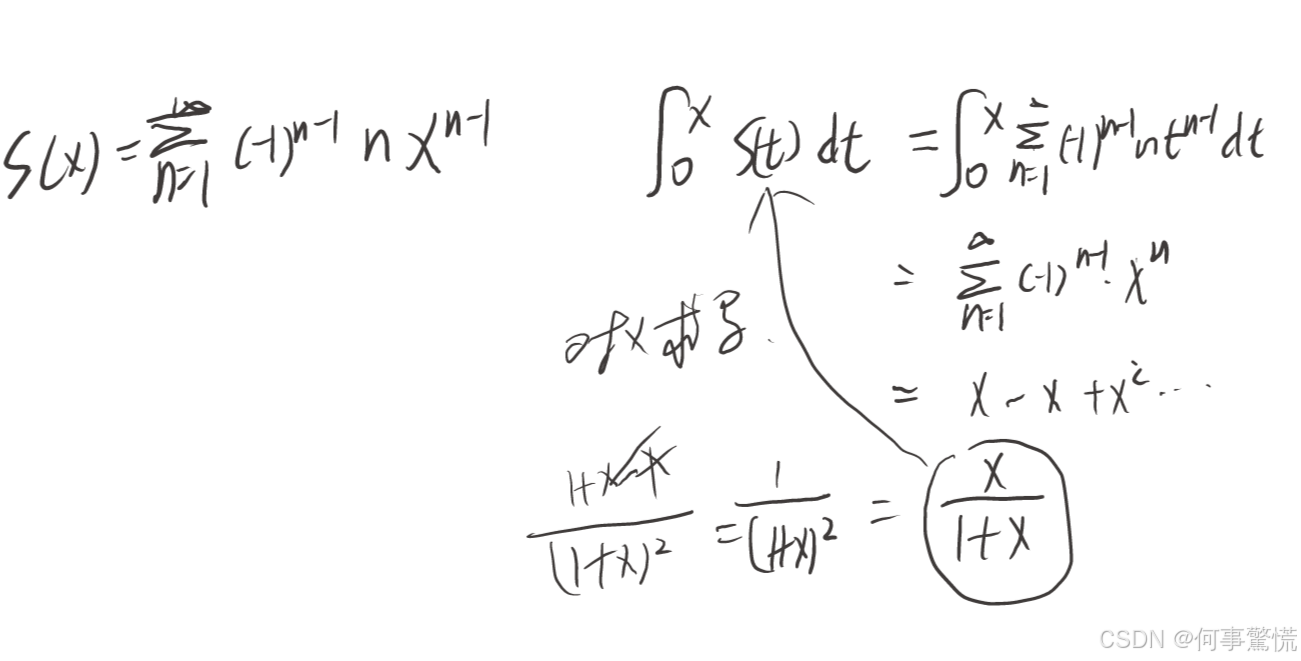 S(x) = ∑_{n=1}^{+∞} (-1)^{n-1} n x^{n-1}
∫_0^x S(t) dt = ∫_0^x ∑_{n=1} (-1)^{n-1} n t^{n-1} dt
= ∑_{n=1}^{∞} (-1)^{n-1} · x^n
对x求导.
= x - x + x^2 ...
\frac{1+x-x}{(1+x)^2} = \frac{1}{(1+x)^2} = \frac{x}{1+x}
CSDN @何事驚慌